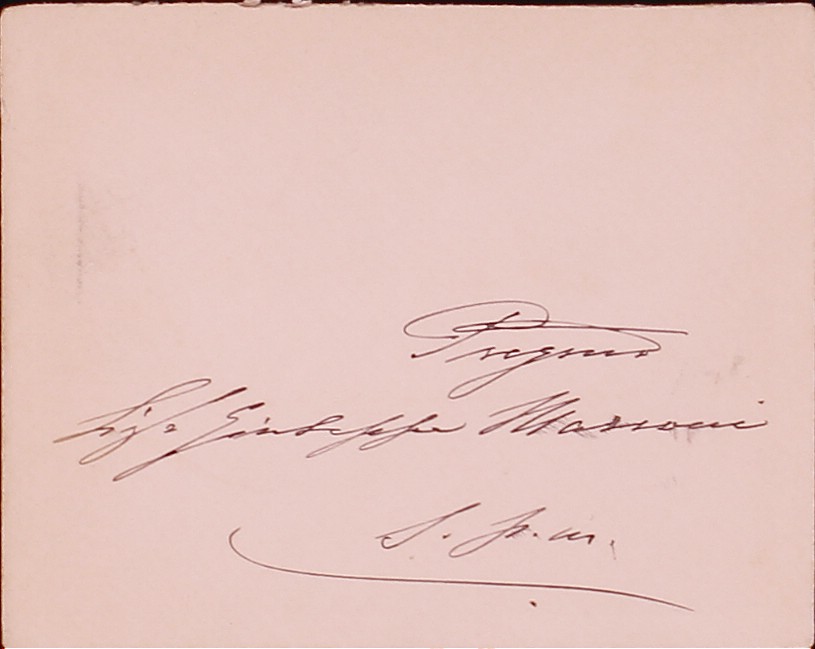 Pregmo
Sigr Giuseppe Massoni
S. P. M.